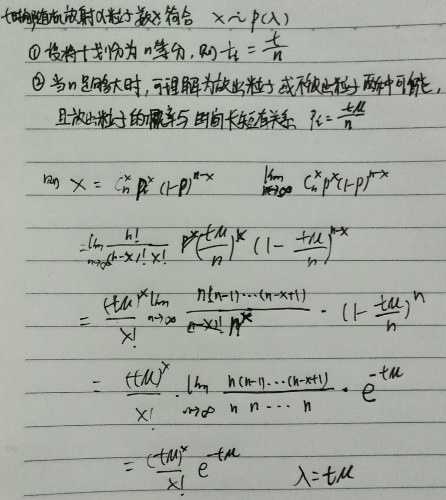 t时间随机放射α粒子数x符合 x~p(λ)
① 设将t划分为n等分, 则 tᵢ = t/n
② 当n足够大时, 可理解为放出粒子或不放出粒子两种可能,
且放出粒子的概率与时间长短有关系 Pᵢ = tμ/n
则 X = Cₙˣ pˣ (1-p)ⁿ⁻ˣ lim n→∞ Cₙˣ pˣ (1-p)ⁿ⁻ˣ
= lim n→∞ n!/(n-x)! x! (tμ/n)ˣ (1 - tμ/n)ⁿ⁻ˣ
= (tμ)ˣ/x! lim n→∞ n(n-1)···(n-x+1)/nˣ · (1 - tμ/n)ⁿ
= (tμ)ˣ/x! · lim n→∞ n(n-1)···(n-x+1)/n n ··· n · e⁻ᵗᵘ
= (tμ)ˣ/x! e⁻ᵗᵘ λ = tμ